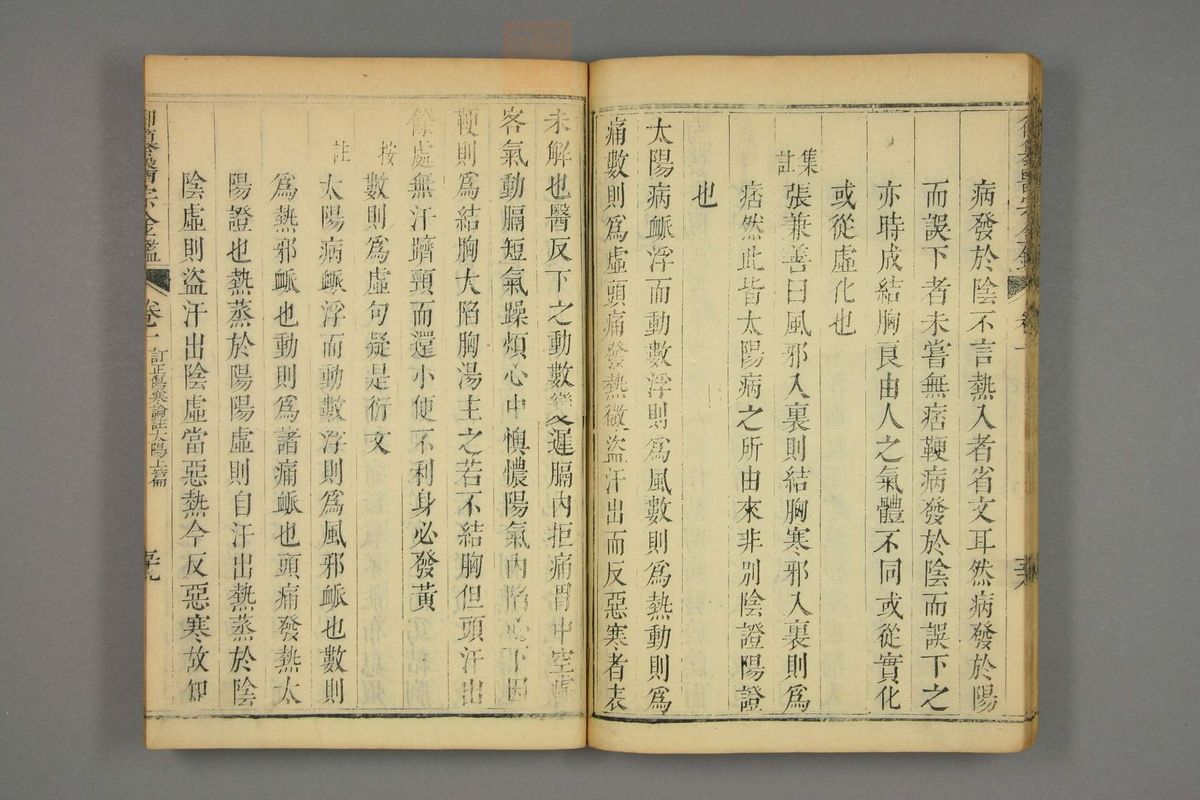 病發於陰不言熱入者省文耳然病發於陽
而誤下者未嘗無痞鞕病發於陰而誤下之
亦時成結胸良由人之氣體不同或從實化
或從虛化也
集註
張兼善曰風邪入裏則結胸寒邪入裏則爲
痞然此皆太陽病之所由來非別陰證陽證
也
太陽病䘑浮而動數浮則爲風數則爲熱動則爲
痛數則爲虛頭痛發熱微盜汗出而反惡寒者表
未解也醫反下之動數變遲膈內拒痛胃中空虛
客氣動膈短氣躁煩心中懊憹陽氣內陷心下因
鞕則爲結胸大陷胸湯主之若不結胸但頭汗出
餘處無汗躋頸而還小便不利身必發黃
按
數則爲虛句疑是衍文
註
太陽病䘑浮而動數浮則爲風邪䘑也數則
爲熱邪䘑也動則爲諸痛䘑也頭痛發熱太
陽證也熱蒸於陽陽虛則自汗出熱蒸於陰
陰虛則盜汗出陰虛當惡熱今反惡寒故知
御纂醫宗金鑑
卷一
訂正傷寒論註太陽上篇
五十九